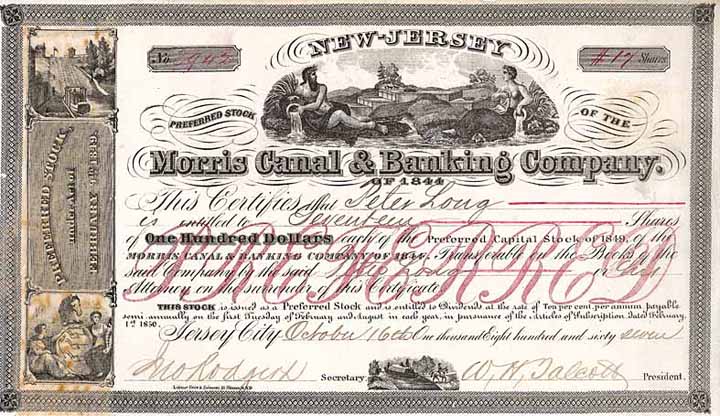 NEW-JERSEY
No. 942 # 17 Shares
PREFERRED STOCK OF THE
Morris Canal & Banking Company.
OF 1844
This Certifies that Peter Long
is entitled to Seventeen Shares
of One Hundred Dollars each of the Preferred Capital Stock of 1849, of the
MORRIS CANAL & BANKING COMPANY OF 1844. Transferable on the Books of the
said Company by the said Peter Long or his
Attorney on the surrender of this Certificate
PREFERRED
THIS STOCK is issued as a Preferred Stock and is entitled to Dividends at the rate of Ten per cent. per annum payable
semi-annually on the first Tuesday of February and August in each year, in pursuance of the Articles of Subscription dated February,
1st 1850.
Jersey City October 16th One thousand Eight hundred and sixty seven
Secretary W. H. Talcott President.
PREFERRED STOCK,
under Act of
FEBRUARY 9th 1849.